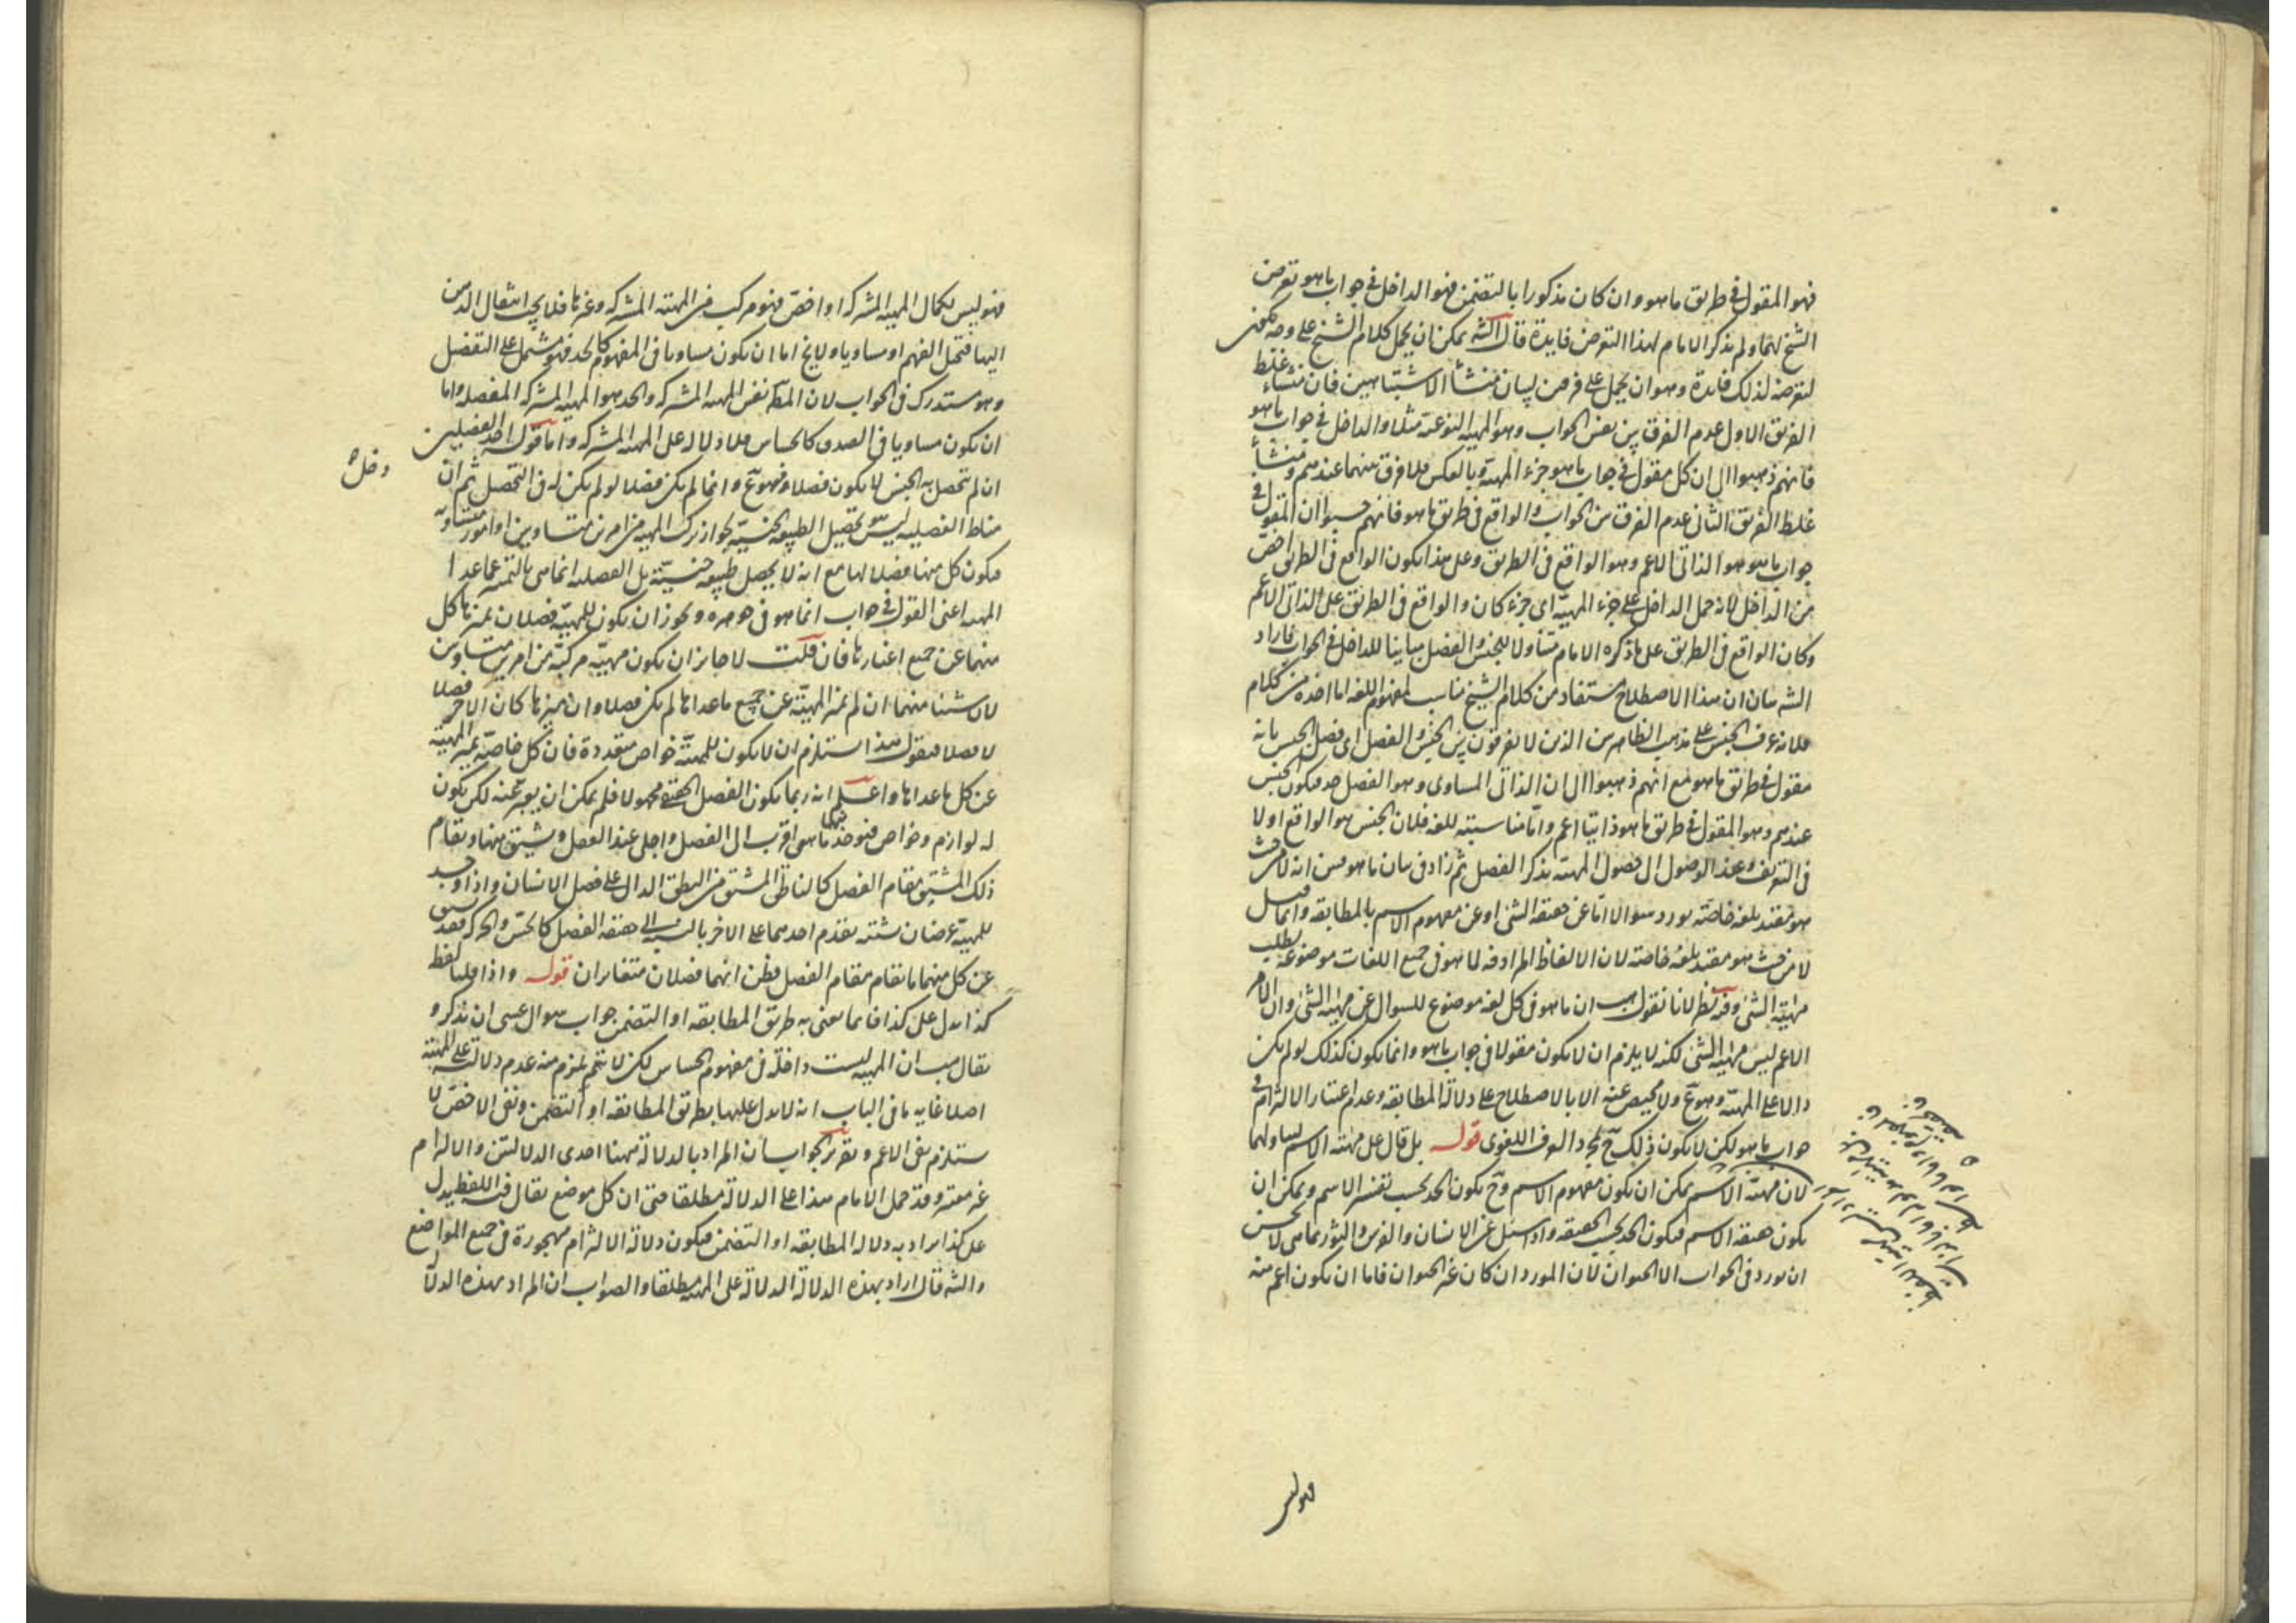 فهو المقول فى طريق ماهو وان كان مذكورا بالتضمن فهو الداخل فى جواب ماهو تعرض
الشيخ لهما ولم يذكر الامام لهذا التعرض فايدة قال الشه يمكن ان يحمل كلام الشيخ على وجه يكون
لتعرضه لذلك فائدة وهو ان يحمل على غرض بيان منشأ الاشتباهين فان منشاء غلط
الفريق الاول عدم الفرق بين نفس الجواب وهو المهية النوعية مثلا والداخل فى جواب ماهو
فانهم ذهبوا الى ان كل مقول فى جواب ماهو جزء المهية وبالعكس فلا فرق بينهما عندهم ومنشأ
غلط الفريق الثانى عدم الفرق بين الجواب والواقع فى طريق ماهو فانهم حسبوا ان المقول فى
جواب ماهو هو الذاتى الاعم وهو الواقع فى الطريق وعلى هذا يكون الواقع فى الطريق اخص
من الداخل لانه حمل الداخل على جزء المهية اى جزء كان والواقع فى الطريق على الذاتى الاعم
وكان الواقع فى الطريق على ما ذكره الامام متناولا للجنس والفصل مباينا للداخل فى الجواب فاراد
الشه بيان ان هذا الاصطلاح مستفاد من كلام الشيخ مناسب لمفهوم اللغة اما اخذه من كلام
فلانه عرف الجنس على مذهب الظاهريين الذين لا يفرقون بين الجنس والفصل اى فصل الجنس بانه
مقول فى طريق ماهو مع انهم ذهبوا الى ان الذاتى المساوى وهو الفصل حد فيكون الجنس
عندهم وهو المقول فى طريق ماهو ذاتيا اعم واما مناسبته للغة فلان الجنس هو الواقع اولا
فى التعريف وعند الوصول الى فصول المهية يذكر الفصل ثم زاد فى بيان ماهو من انه لا من حيث
هو مقيد بلغة خاصة يورد سوالا اما عن حقيقة الشئ او عن مفهوم الاسم بالمطابقة وانما قيل
لا من حيث هو مقيد بلغة خاصة لان الالفاظ المرادفة لما هو فى جميع اللغات موضوعة لطلب
مهية الشئ وفيه نظر لانا نقول هب ان ماهو فى كل لغة موضوع للسوال عن مهية الشئ وان الامر
الاعم ليس مهية الشئ لكنه لا يلزم ان لا يكون مقولا فى جواب ماهو وانما يكون كذلك لو لم يكن
دالا على المهية وهو مم ولا محيص عنه الا بالاصطلاح على دلالة المطابقة وعدم اعتبار الالتزام فى
جواب ماهو لكن لا يكون ذلك ح لمجرد العرف اللغوى قوله بل قال على مهية الاسم ليتناولهما
لان مهية الاسم يمكن ان يكون مفهوم الاسم وح يكون الحد بحسب تفسير الاسم ويمكن ان
يكون حقيقة الاسم فيكون الحد بحسب الحقيقة واذا سئل عن الانسان والفرس والثور بماهى لا يحسن
ان يورد فى الجواب الا الحيوان لان المورد ان كان غير الحيوان فاما ان يكون اعم منه
فهو ليس
فهو ليس بكمال المهية المشتركة او اخص فهو مركب من المهية المشتركة وغيرها فلا يجب انتقال الذهن
اليها فيختل الفهم او مساويا ولايخ اما ان يكون مساويا فى المفهوم كالحد فهو مشتمل على التفصيل
وهو مستدرك فى الجواب لان المط نفس المهية المشتركة والحد هو المهية المشتركة المفصلة واما
ان يكون مساويا فى الصدق كالحساس فلا دلالة على المهية المشتركة واما قوله احد الفصلين
ان لم يتحصل به الجنس لا يكون فصلا فهو مم وانما لم يكن فصلا لو لم يكن له فى التحصل ثم ان
دخل
مناط الفصلية ليس تحصيل الطبيعة الجنسية لجواز تركب المهية من امرين متساويين او امور متساوية
فيكون كل منها فصلا لها مع انه لا يحصل طبيعة جنسية بل الفصلية انما هى بالتميز عما عدا
المهية اعنى القول فى جواب انما هو فى جوهره ويجوز ان يكون للمهية فصلان يميزها كل
منهما عن جميع اغيارها فان قلت لا جايز ان يكون مهية مركبة من امرين متساويين
لان شيئا منهما ان لم يميز المهية عن جميع ماعداها لم يكن فصلا وان ميزها كان الاخر فصلا
لا فصلا فنقول هذا يستلزم ان لا يكون للمهية خواص متعددة فان كل خاصة يميز المهية
عن كل ماعداها واعلم انه ربما يكون الفصل الحقيقى مجهولا فلم يمكن ان يعبر عنه لكن يكون
له لوازم وخواص فيوخذ منها ماهى اقرب الى الفصل واجلى عند العقل ويشتق منها ويقام
ذلك المشتق مقام الفصل كالناطق المشتق من النطق الدال على فصل الانسان واذا وجد
للمهية عرضان يشتبه تقدم احدهما على الاخر بالنسبة الى حقيقة الفصل كالحس والحركة فقد يشتق
عن كل منهما ما يقام مقام الفصل فظن انهما فصلان متغايران قوله واذا قلنا لفظ
كذا يدل على كذا فانما نعنى به طريق المطابقة او التضمن جواب سوال عسى ان يذكر و
يقال هب ان المهية ليست داخلة فى مفهوم الحساس لكن لا يتم يلزم منه عدم دلالته على المهية
اصلا غاية ما فى الباب انه لا يدل عليها بطريق المطابقة او التضمن ونفى الاخص لا
يستلزم نفى الاعم وتقرير الجواب ان المراد بالدلالة ههنا احدى الدلالتين والالتزام
غير معتبر وقد حمل الامام هذا على الدلالة مطلقا حتى ان كل موضع يقال فيه اللفظ يدل
على كذا يراد به دلالة المطابقة او التضمن فيكون دلالة الالتزام مهجورة فى جميع المواضع
والشه قال اراد بهذه الدلالة الدلالة على المهية مطلقا والصواب ان المراد بهذه الدلالة